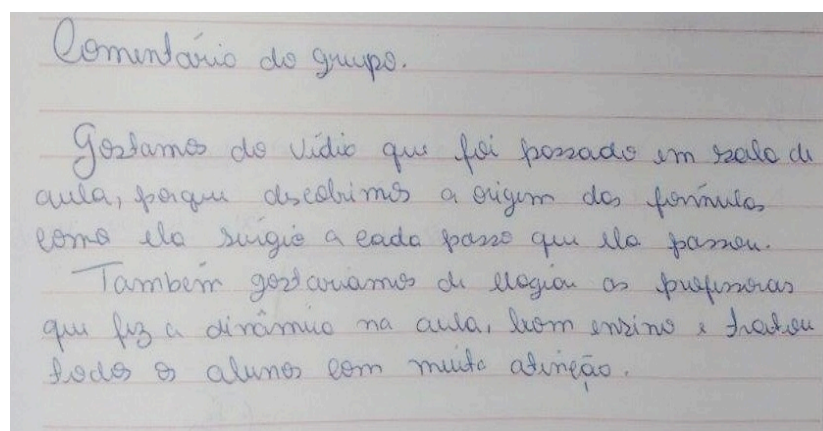 Comentário do grupo.
Gostamos do vídio que foi passado em sala de
aula, porque descobrimos a origem das fórmulas
como ela surgio a cada passo que ela passou.
Também gostariamos de elogiar as professoras
que fez a dinâmica na aula, bom ensino e tratou
todos os alunos com muita atenção.